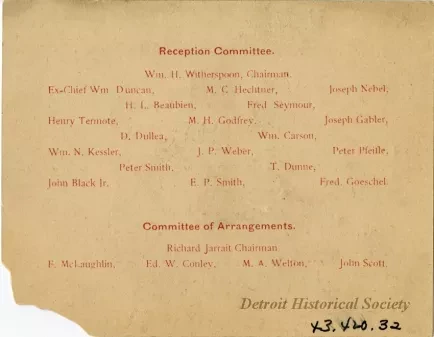 Reception Committee.
Wm. H. Witherspoon, Chairman.
Ex-Chief Wm. Duncan, M. C. Hechtner, Joseph Nebel,
H. L. Beaubien, Fred Seymour,
Henry Termote, M. H. Godfrey, Joseph Gabler,
D. Dullea, Wm. Carson,
Wm. N. Kessler, J. P. Weber, Peter Pfeifle,
Peter Smith, T. Dunne,
John Black Jr. E. P. Smith, Fred. Goeschel.
Committee of Arrangements.
Richard Jarrait Chairman
F. McLaughlin, Ed. W. Conley, M. A. Welton, John Scott.
Detroit Historical Society
43.420.32